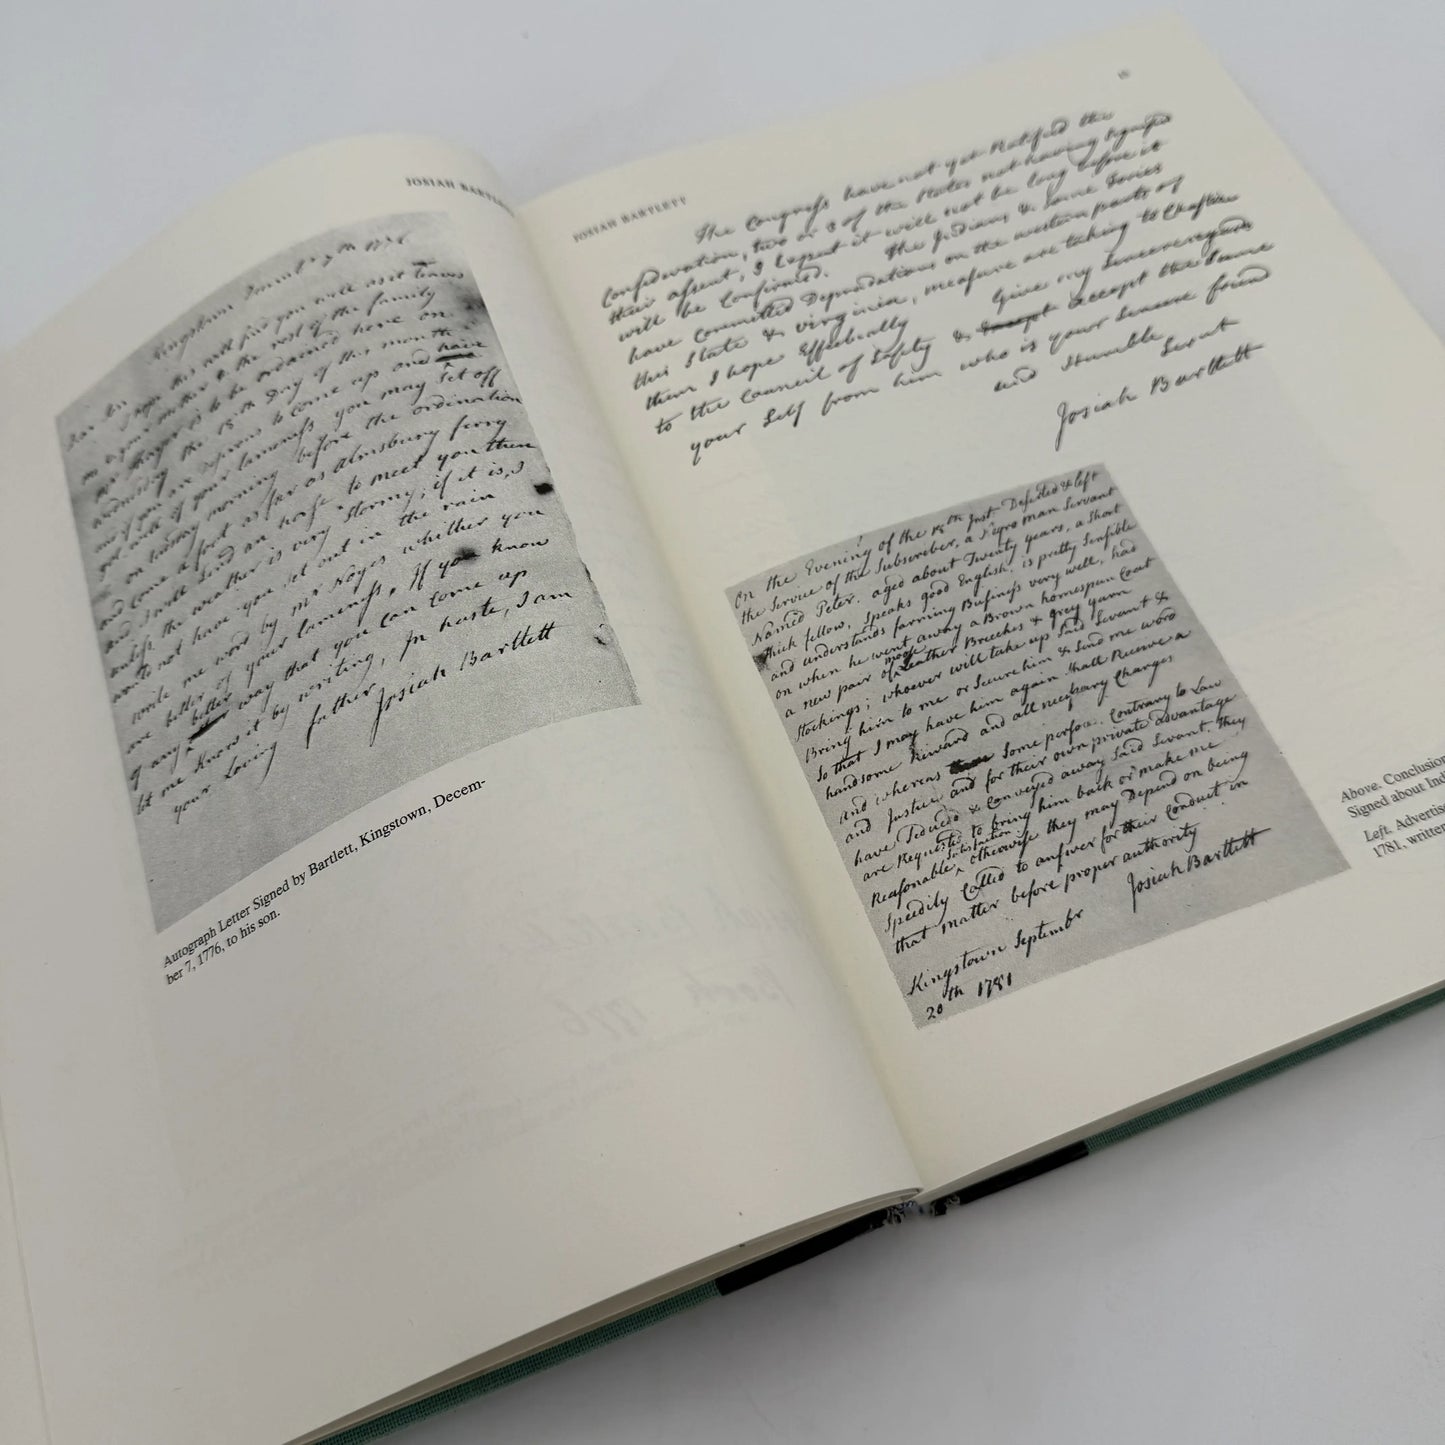 JOSIAH BARTLETT
Kingstown
Dear Sir I hope this will find you well as it leaves
me & your mother & the rest of the family
Mr Thayer is to be ordained here on
wednesday the 18th Day of this month
and if you are Desirous to come up and have
got well of your lameness you may set off
on tuesday morning before the ordination
and come a foot as far as Almsbury ferry
and I will Send an horse to meet you then
unless the weather is very stormy; if it is, I
would not have you set out in the rain
write me word by Mr Noyes whether you
are better of your lameness, If you know
of any better way that you can come up
let me know it by writing, In haste, I am
your Loving father
Josiah Bartlett
Autograph Letter Signed by Bartlett, Kingstown, Decem-
ber 7, 1776, to his son.
JOSIAH BARTLETT
The Congress have not yet Ratified the
Confederation, two or 3 of the States not having Signified
their assent, I expect it will not be long before it
will be Confirmed. The Indians & Some Tories
have Committed Depradations on the western parts of
this State & virginia, measures are taking to Chastise
them I hope Effectually Give my Sincere regards
to the Council of Safety & accept the Same
your Self from him who is your Sincere friend
and Humble Servt
Josiah Bartlett
On the Evening of the 18th Inst. Deserted & left
the Service of the Subscriber, a Negro man Servant
Named Peter, aged about Twenty years, a Short
thick fellow, Speaks good English, is pretty Sensible
and understands farming Business very well, had
on when he went away a Brown homespun Coat
a new pair of moose Leather Breeches & grey yarn
Stockings; whoever will take up Said Servant &
Bring him to me or Secure him & Send me word
So that I may have him again Shall Receive a
handsome Reward and all necessary Charges
and whereas Some persons, Contrary to Law
and Justice and for their own private advantage
have Seduced & Conveyed away Said Servant. They
are Requested to bring him back or make me
Reasonable Satisfaction, otherwise they may Depend on being
Speedily Called to answer for their Conduct in
that matter before proper authority
Josiah Bartlett
Kingstown Septembr
20th 1781
Above. Conclusion
Signed about Ind
Left. Advertise
1781, written